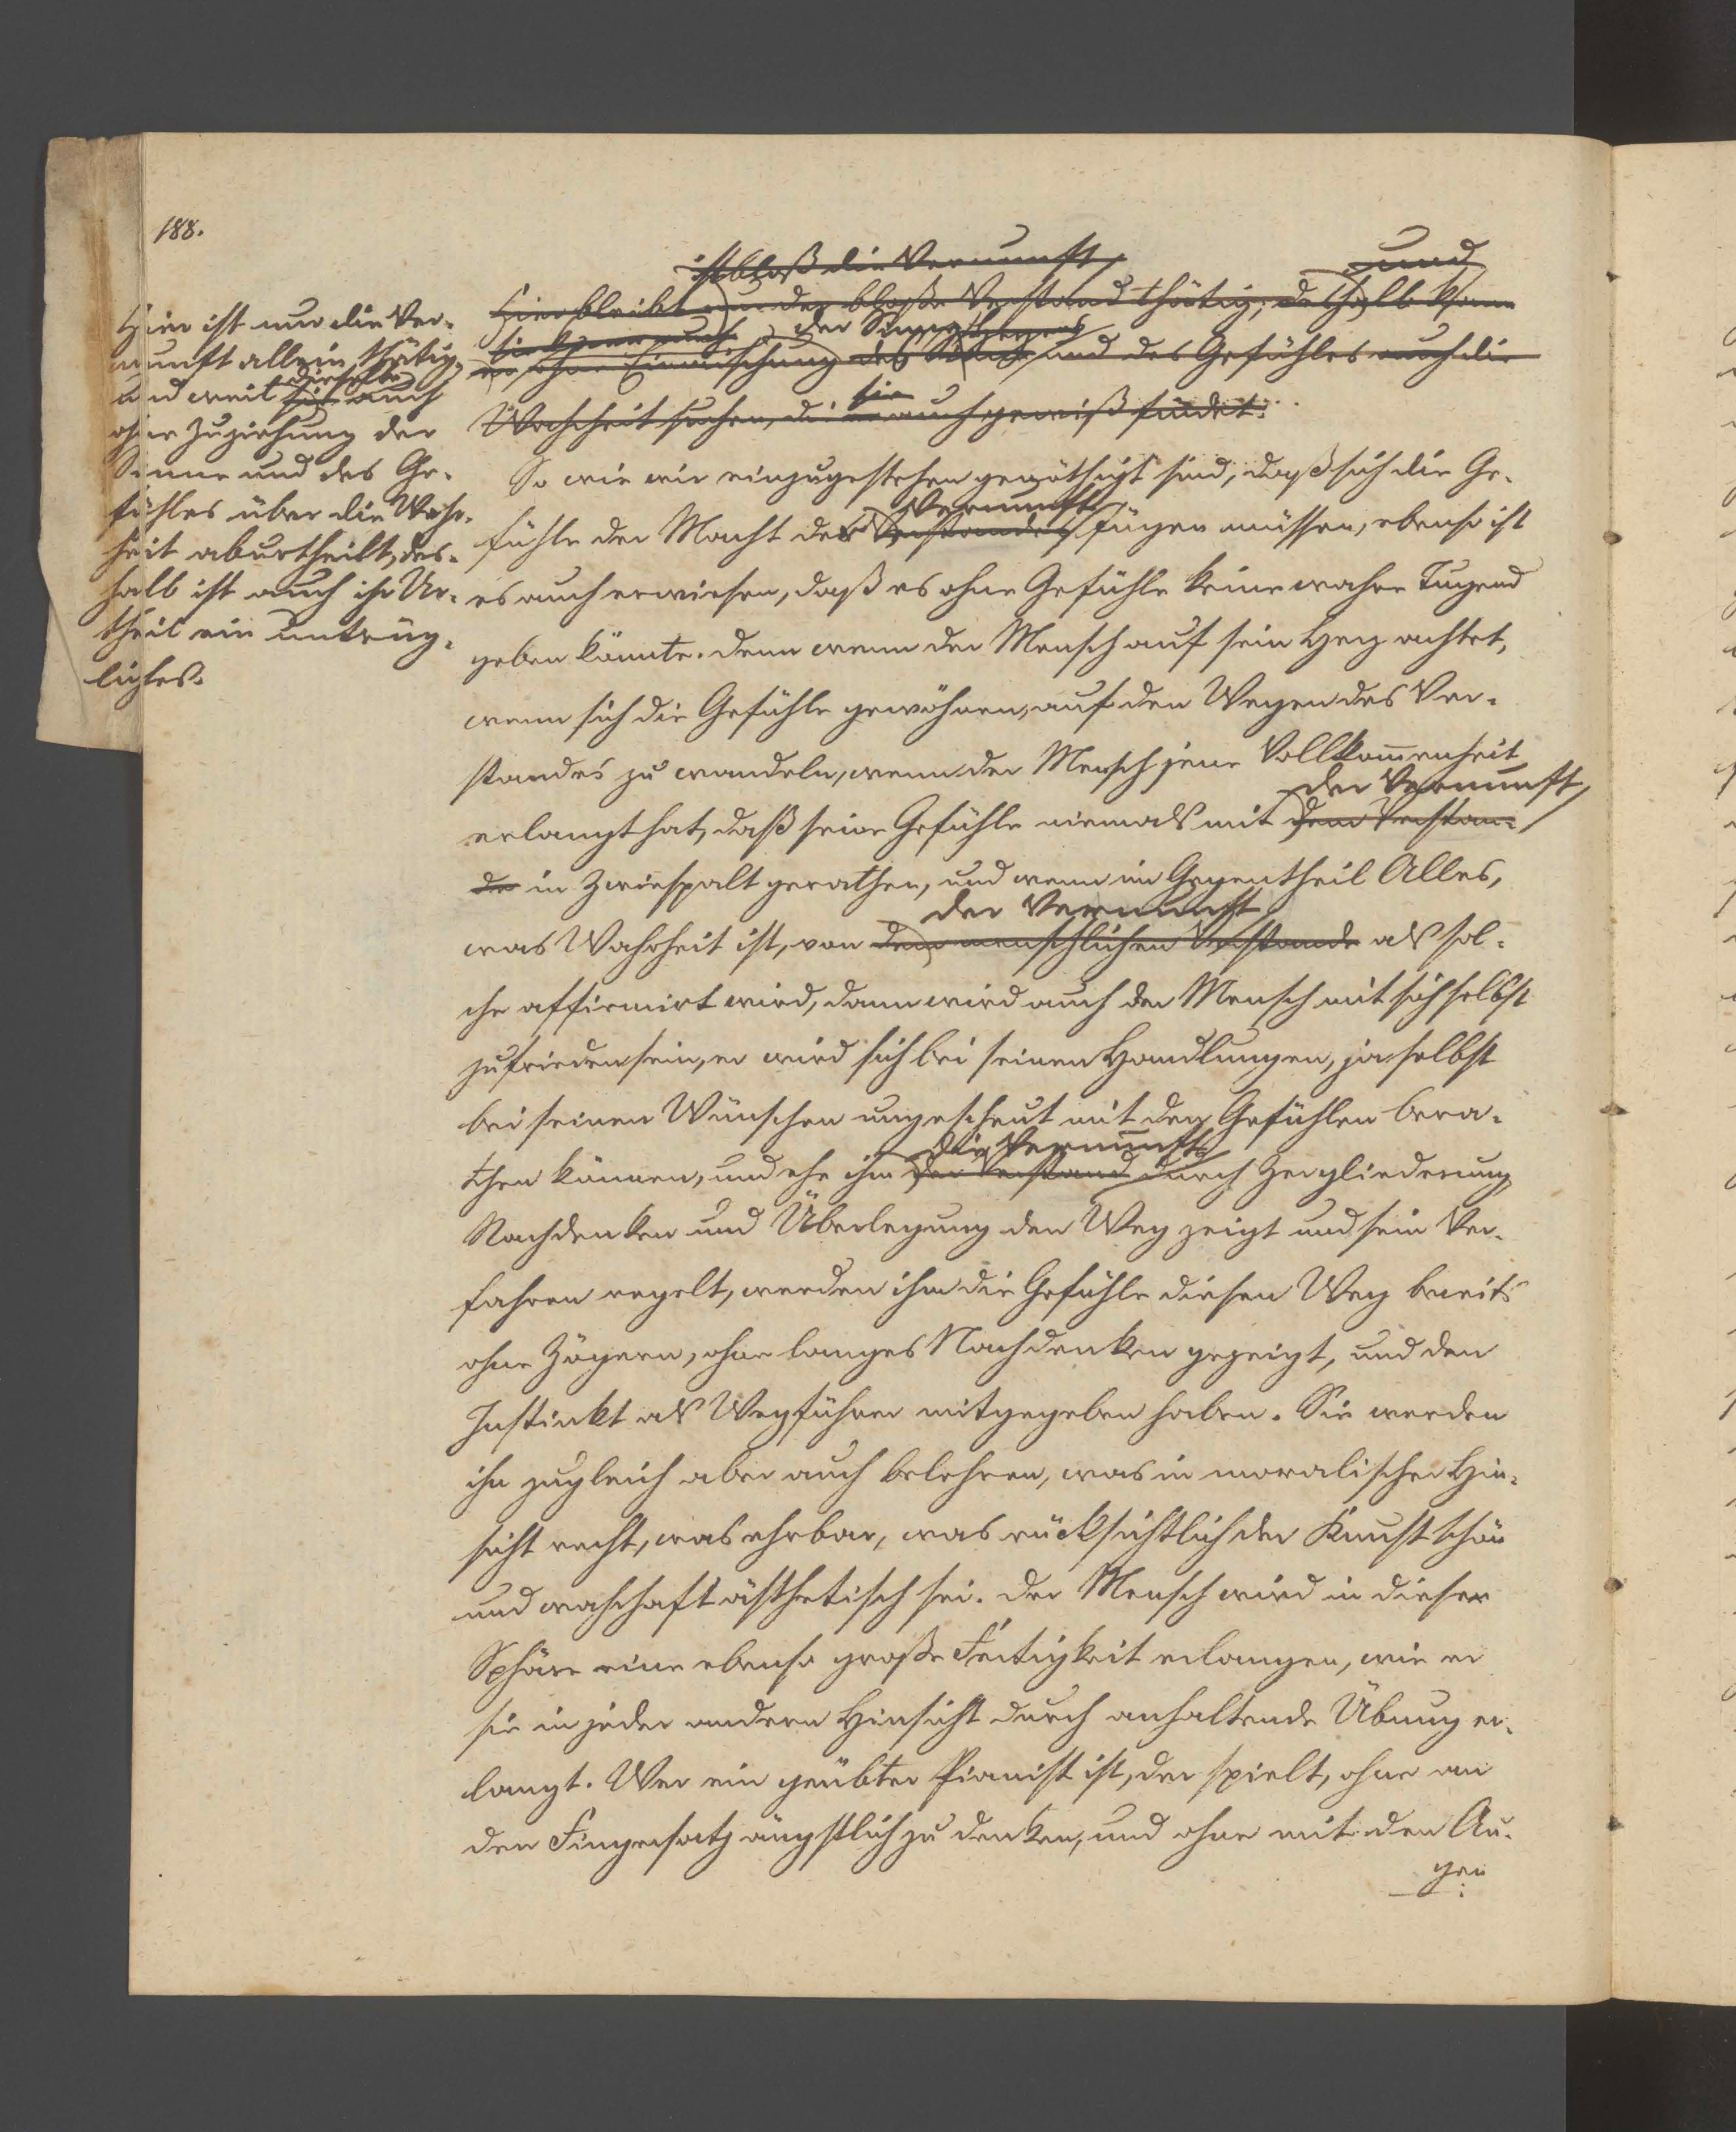 188.
Hier ist nur die Ver-
nunft allein thätig,
und weil sie dieselbe auch
ohne Zuziehung der
Sinne und des Ge-
fühles über die Wahr-
heit aburtheilt, des-
halb ist auch ihr Ur-
theil ein untrüg-
liches.
ist bloß die Vernunft und
Hier bleibt nur der bloße Verstand thätig; deshalb kann
sie kann auch der Sinne Herzens
er ohne Einmischung des und des Gefühles auch die
sie
Wahrheit suchen, die er auch gewiß findet.
So wie wir einzugestehen genöthigt sind, daß sich die Ge-
Vernunft
fühle der Macht der Verstandes fügen müssen, ebenso ist
es auch erwiesen, daß es ohne Gefühle keine wahre Tugend
geben könnte. Denn wenn der Mensch auf sein Herz achtet,
wenn sich die Gefühle gewöhnen, auf den Wegen des Ver-
standes zu wandeln, wenn der Mensch jene Vollkom̅enheit
der Vernunft
erlangt hat, daß seine Gefühle niemals mit dem Verstan-
de in Zwiespalt gerathen, und wenn im Gegentheil Alles,
der Vernunft
was Wahrheit ist, von dem menschlichen Verstande als sol-
che affirmirt wird, dann wird auch der Mensch mit sich selbst
zufrieden sein, er wird sich bei seinen Handlungen, ja selbst
bei seinen Wünschen ungescheut mit den Gefühlen bera-
die Vernunft
then können, und ehe ihm der Verstand durch Zergliederung
Nachdenken und Überlegung den Weg zeigt und sein Ver-
fahren regelt, werden ihm die Gefühle diesen Weg bereits
ohne Zögern, ohne langes Nachdenken gezeigt, und den
Instinkt als Wegführer mitgegeben haben. Sie werden
ihn zugleich aber auch belehren, was in moralischer Hin-
sicht recht, was ehrbar, was rücksichtlich der Kunst schön
und wahrhaft ästhetisch sei. Der Mensch wird in dieser
Sphäre eine ebenso große Fertigkeit erlangen, wie er
sie in jeder andern Hinsicht durch anhaltende Übung er-
langt. Wer ein geübter Pianist ist, der spielt, ohne an
den Fingersatz ängstlich zu denken, und ohne mit den Au-
gen